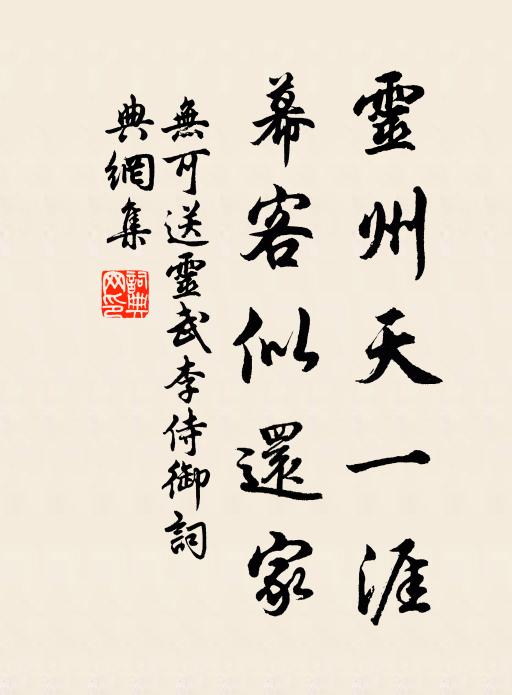 靈州天一涯
幕客似還家
無可送靈武李侍御詞
典網集
詞典網印